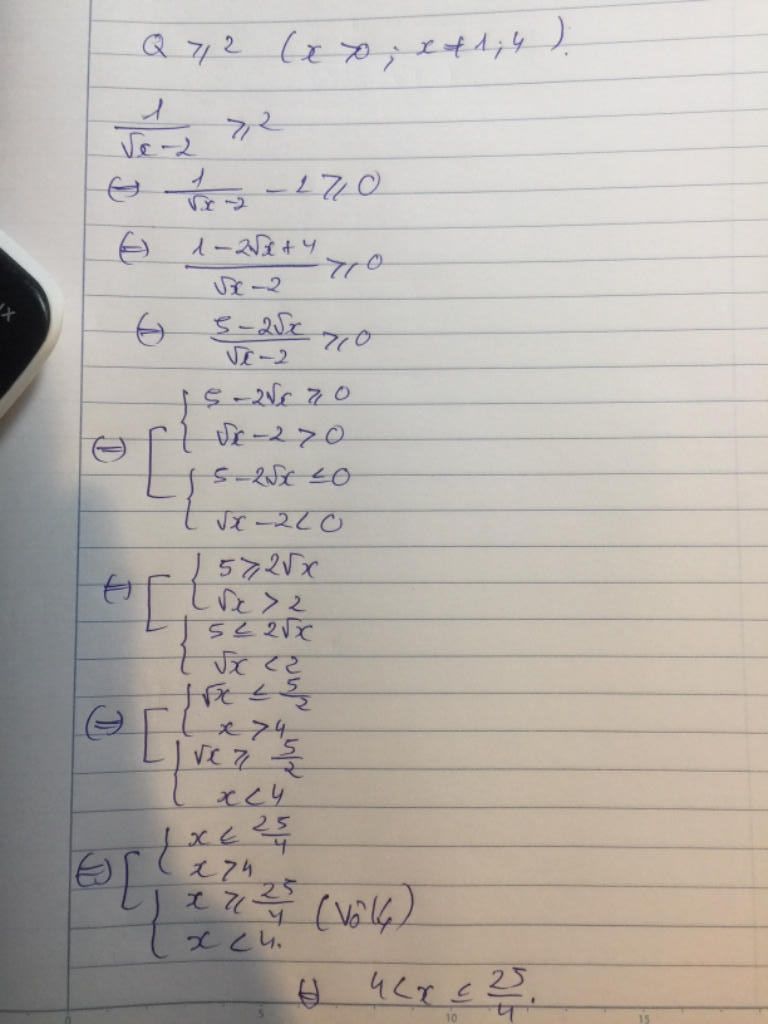 Q ⩾ 2 (x > 0 ; x ≠ 1 ; 4).
1/(√x − 2) ⩾ 2
⇔ 1/(√x − 2) − 2 ⩾ 0
⇔ (1 − 2√x + 4)/(√x − 2) ⩾ 0
⇔ (5 − 2√x)/(√x − 2) ⩾ 0
⇔ [ { 5 − 2√x ⩾ 0
√x − 2 > 0
{ 5 − 2√x ≤ 0
√x − 2 < 0
⇔ [ { 5 ⩾ 2√x
√x > 2
{ 5 ≤ 2√x
√x < 2
⇔ [ { √x ≤ 5/2
x > 4
{ √x ⩾ 5/2
x < 4
⇔ [ { x ≤ 25/4
x > 4
{ x ⩾ 25/4 (Vô lý)
x < 4.
⇔ 4 < x ≤ 25/4.
5 10 15